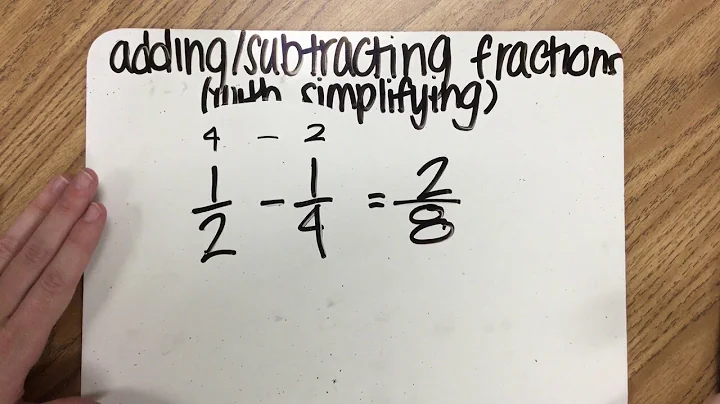 adding/subtracting fractions
(with simplifying)
4 - 2
1/2 - 1/4 = 2/8